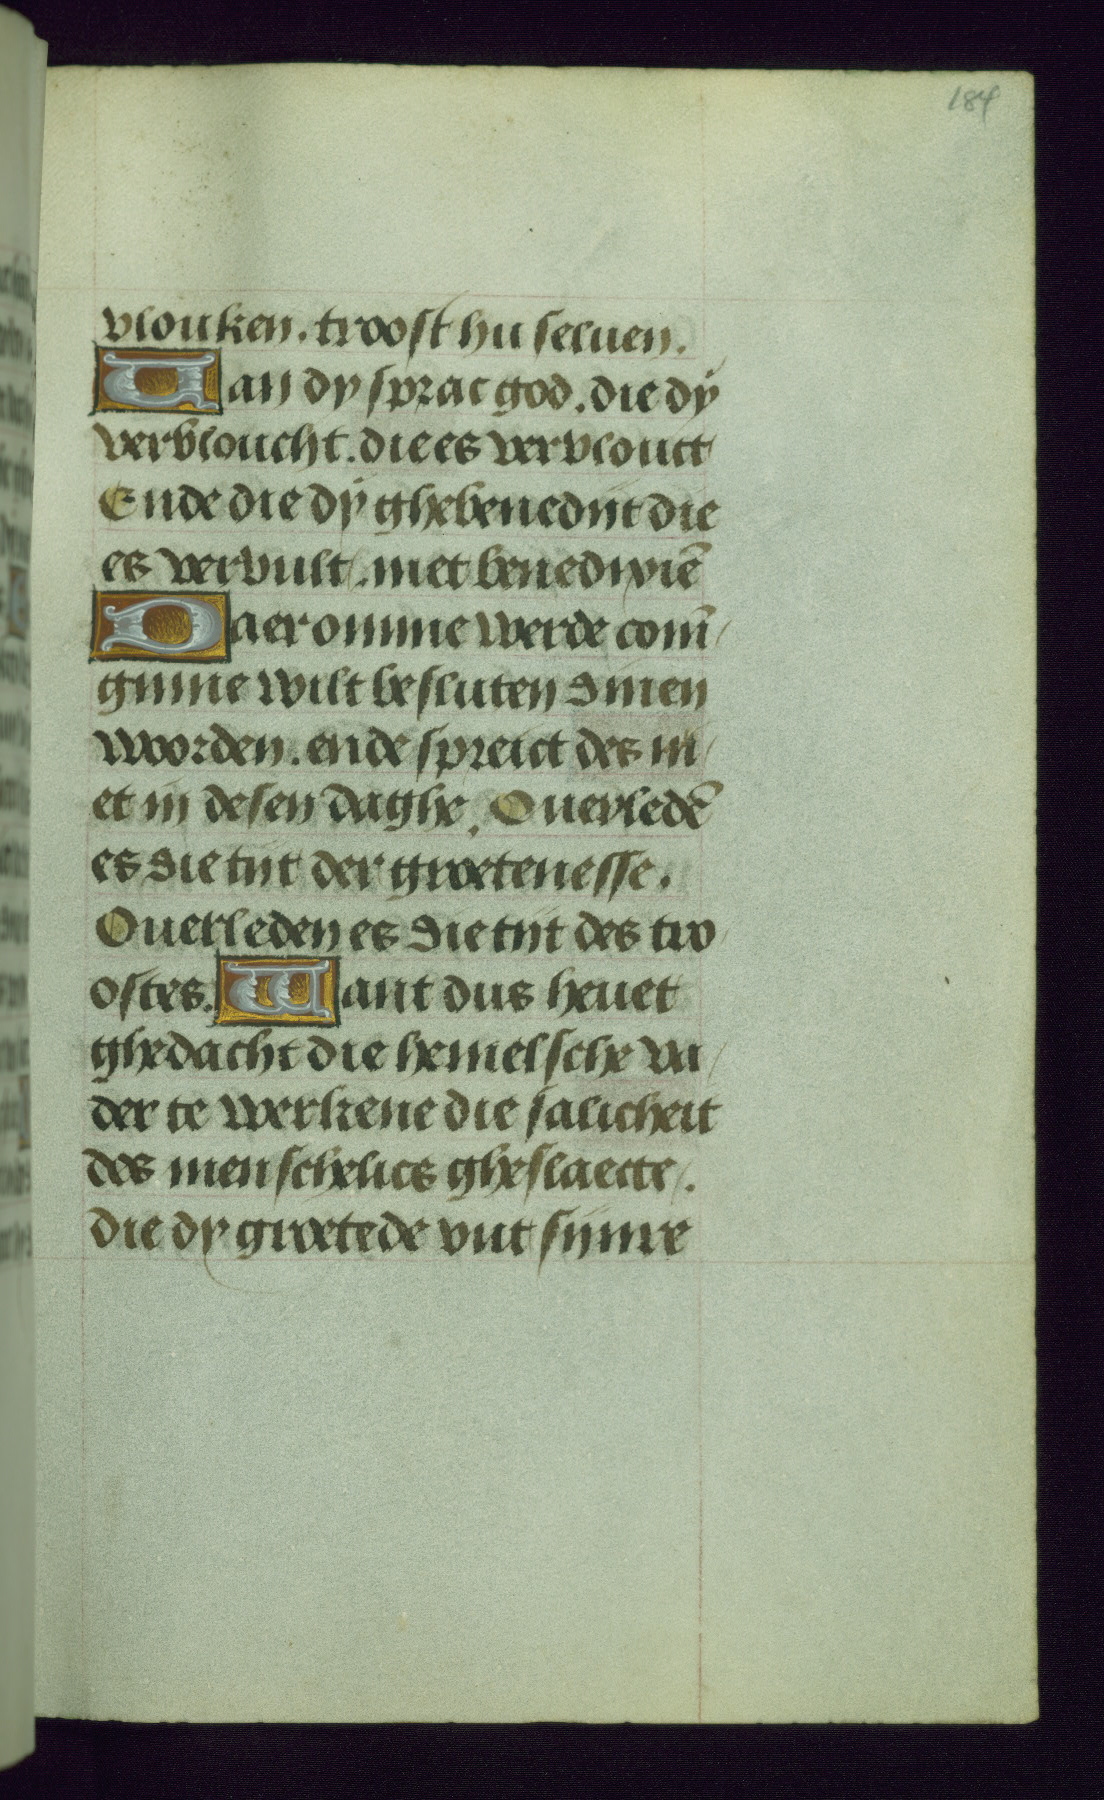 184
vlouken. troost hu seluen.
Uan dy sprac god. die dÿ
vervloucht. die es vervlouct
Ende die dÿ ghebenedijt die
es vervult. met benedixiē
Daeromme werde coni̅/
ghinne wilt besluten dinen
woorden. ende spreict des ni/
et in desen daghe. Ouerledē
es die tijt der groetenesse.
Ouerleden es die tijt des tro/
ostes. Want dus heuet
ghedacht die hemelsche va/
der te werkene die salicheit
des menschelics gheslaecte.
die dy groetede vut sijnre